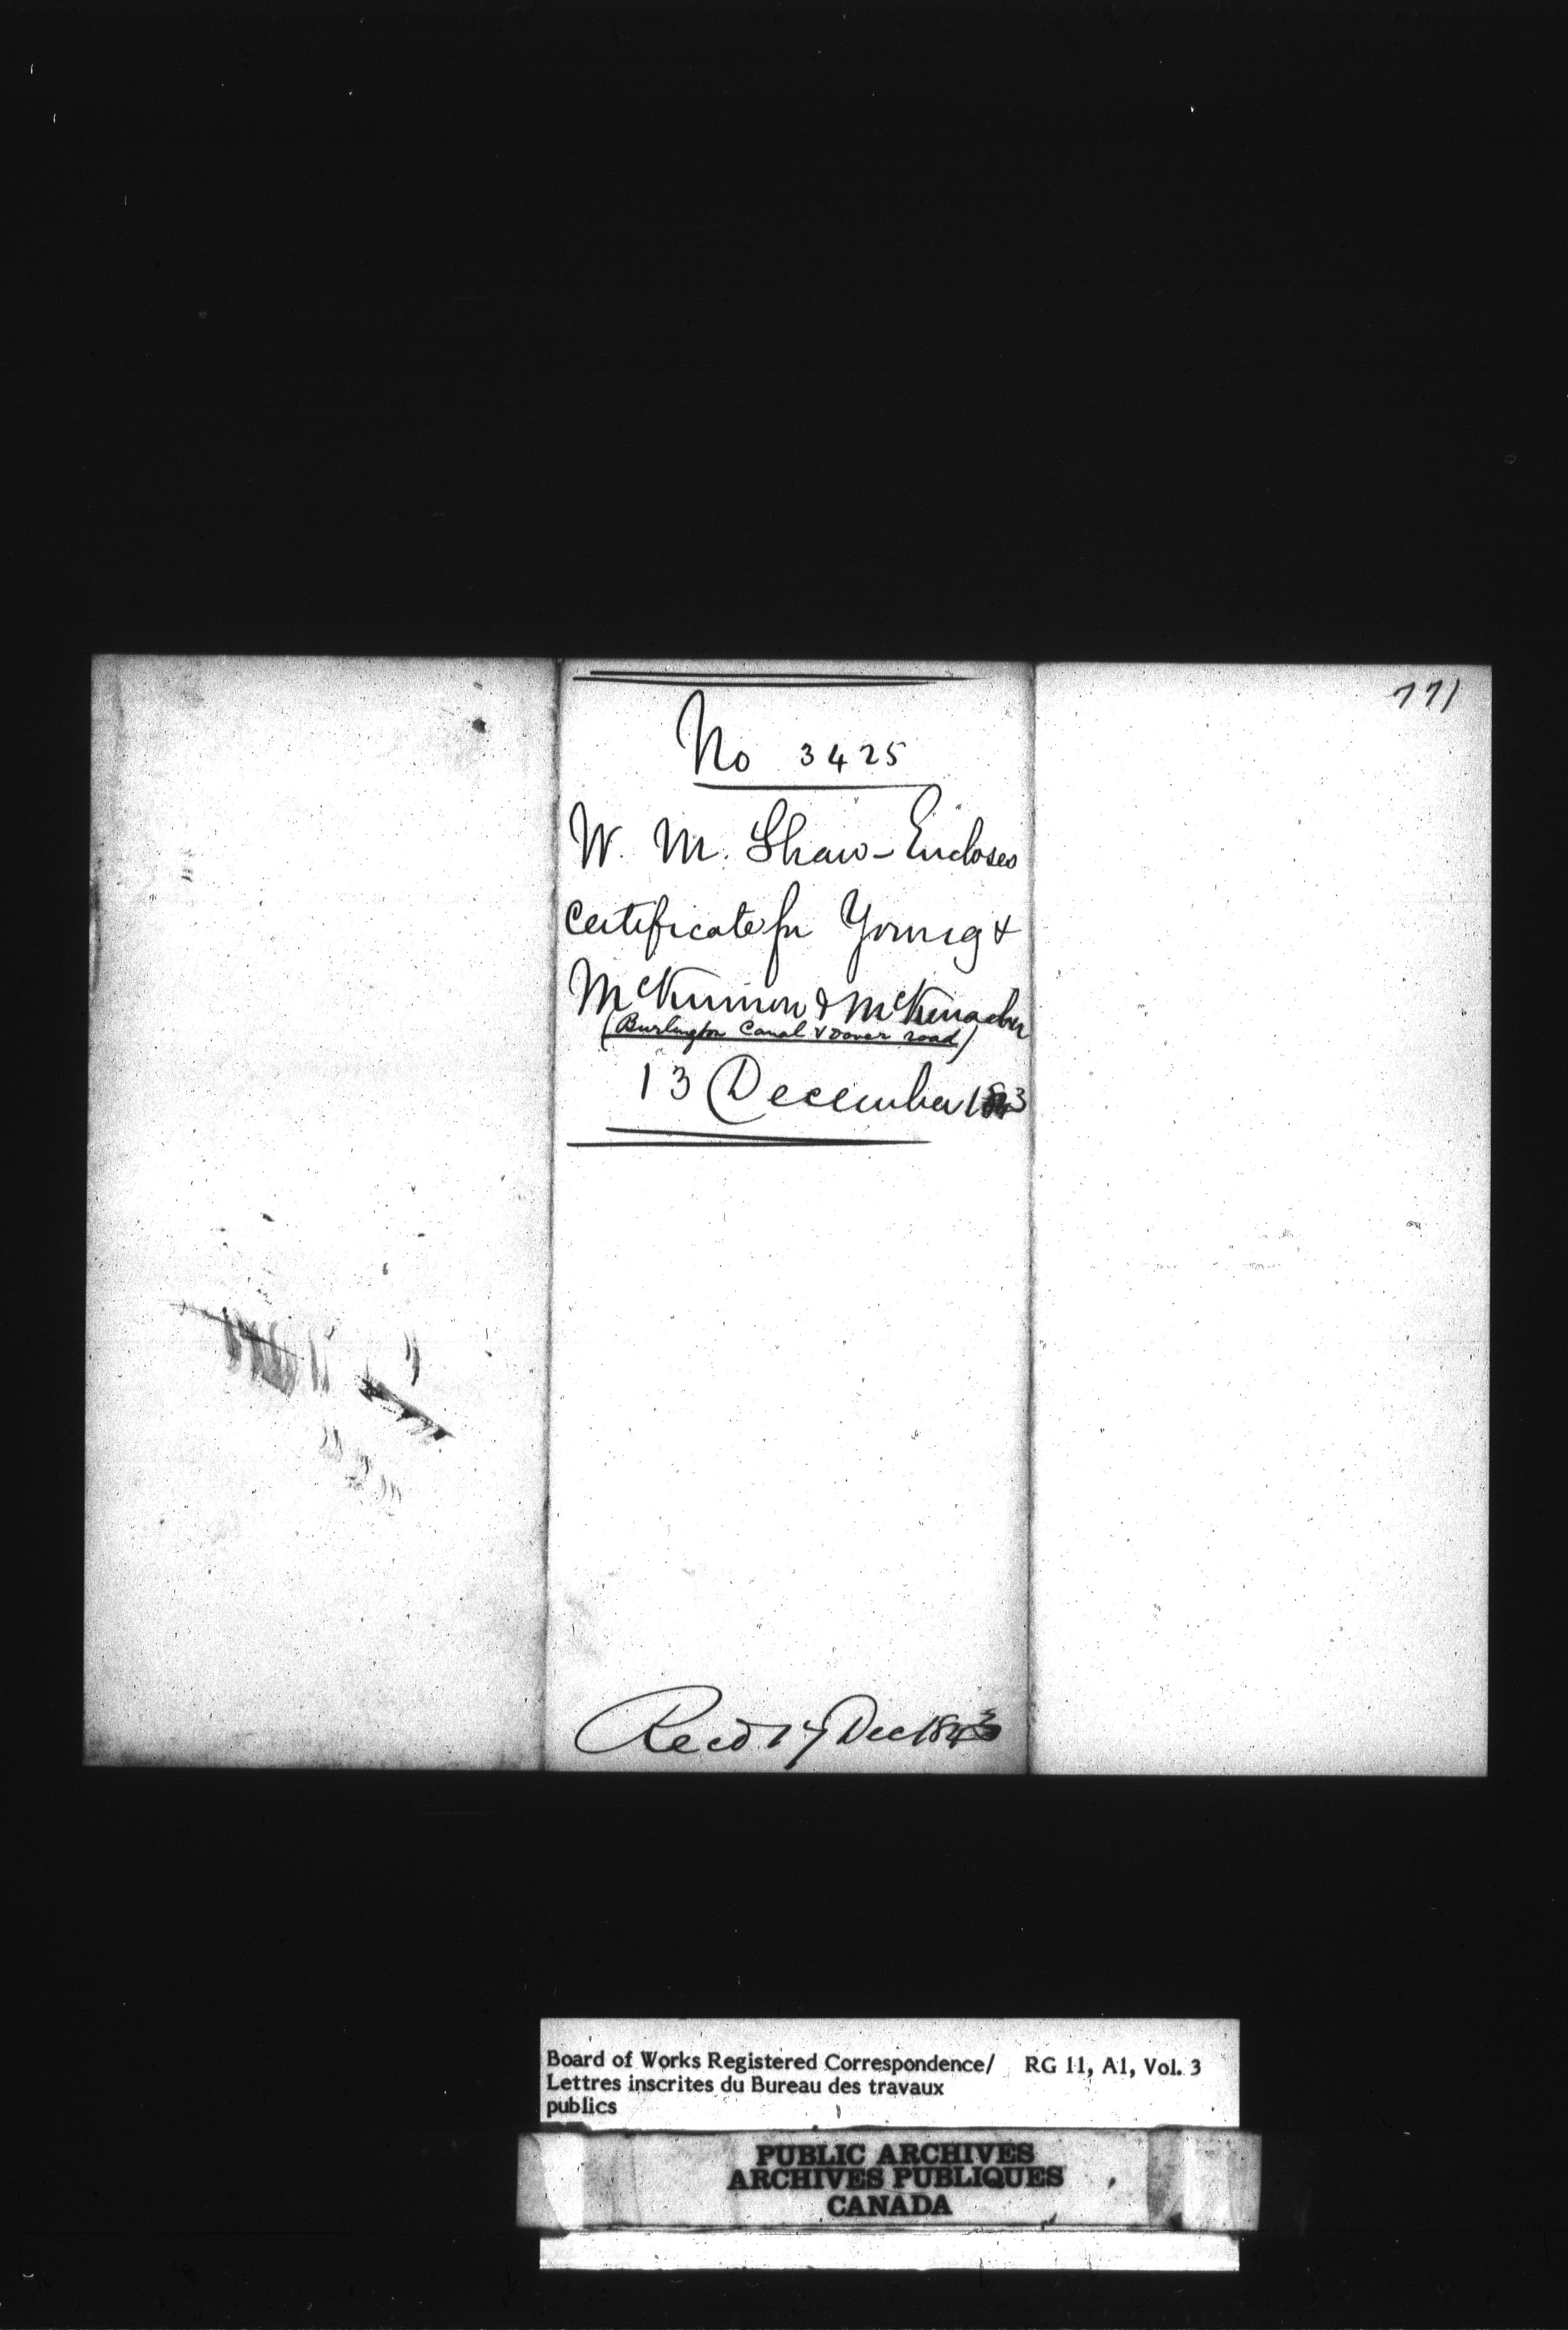 771
No 3425
W. M. Shaw - Encloses
Certificate for Young &
McKinnon &
(Burlington Canal & Dover road)
13 December 1843
Recd 17 Dec 1843
Board of Works Registered Correspondence/ RG 11, A1, Vol. 3
Lettres inscrites du Bureau des travaux
publics
PUBLIC ARCHIVES
ARCHIVES PUBLIQUES
CANADA